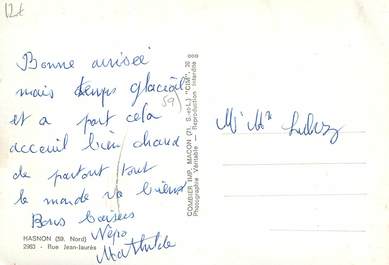 12t
Bonne arrivée
mais temps glacial
59
et a part cela
acceuil bien chaud
de partout tout
le monde va bien
Bons baisers
Népo
Mathilde
HASNON (59. Nord)
2963 - Rue Jean-Jaurès
COMBIER IMP. MACON (71. S.-et-L.) "CIM"
Photographie Véritable - Reproduction Interdite
Mr Mme